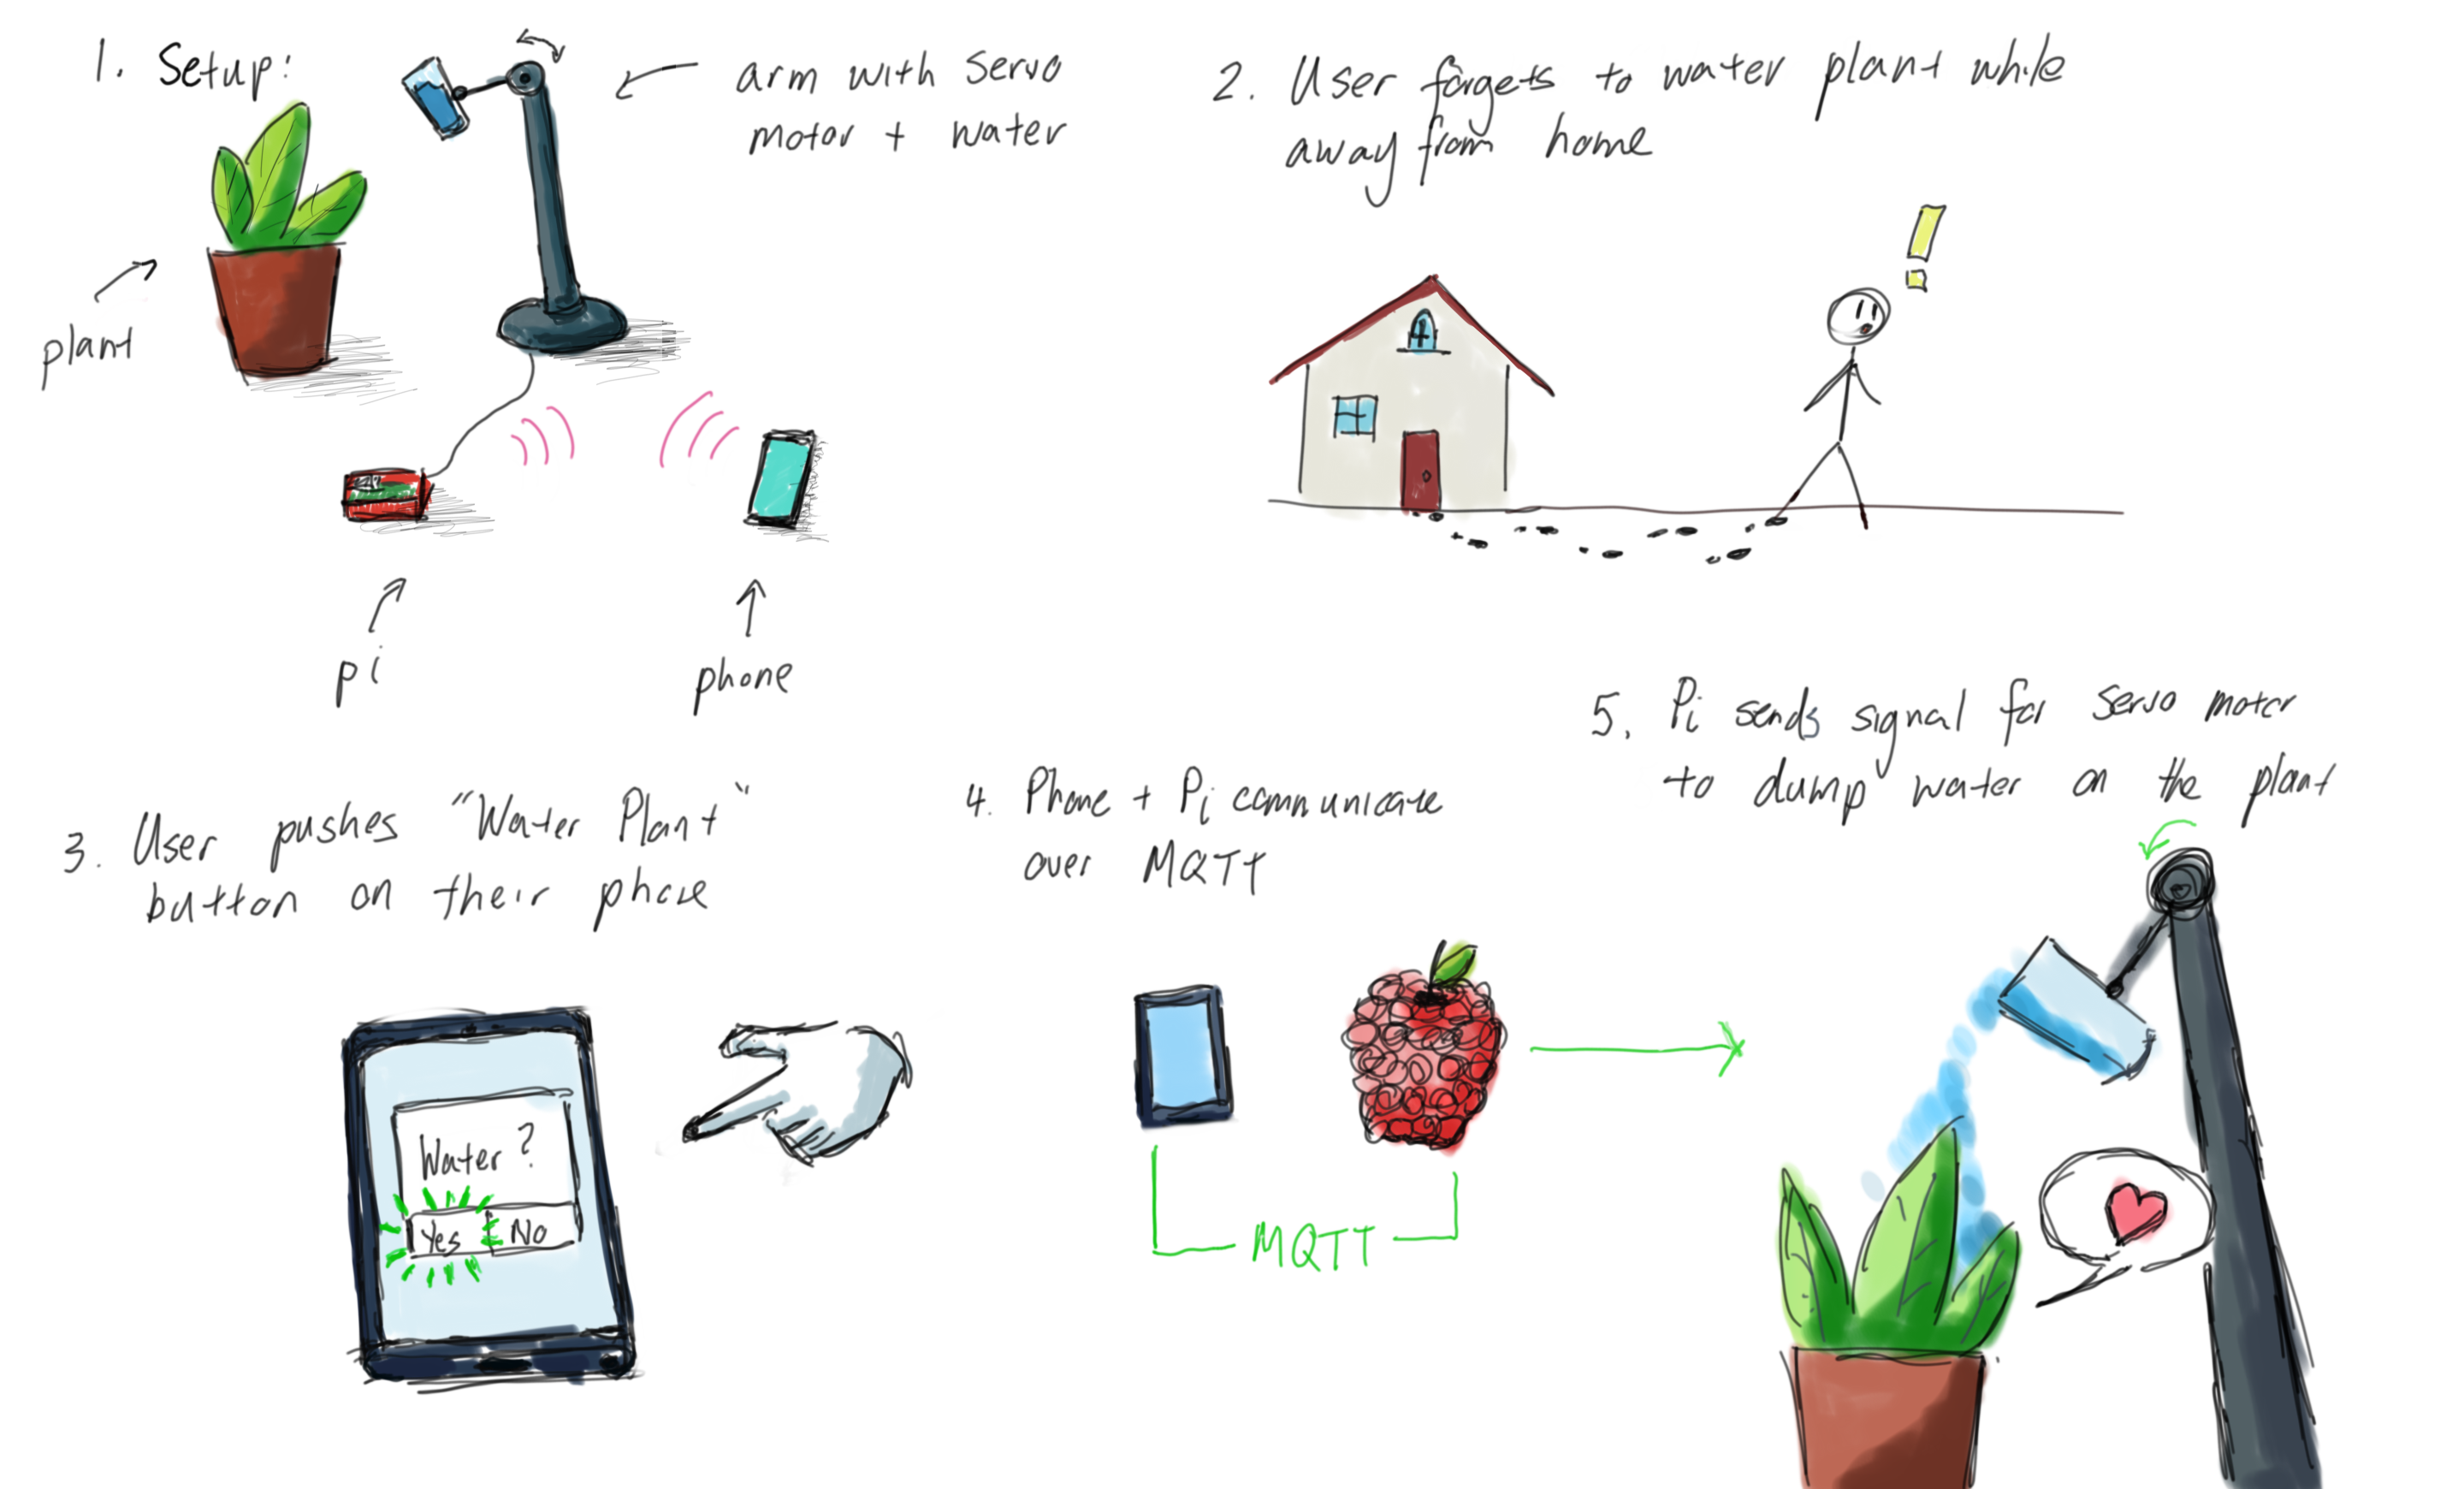 1. Setup:
arm with servo
motor + water
plant
pi
phone
2. User forgets to water plant while
away from home
3. User pushes "Water Plant"
button on their phone
Water?
Yes
No
4. Phone + Pi communicate
over MQTT
MQTT
5. Pi sends signal for servo motor
to dump water on the plant